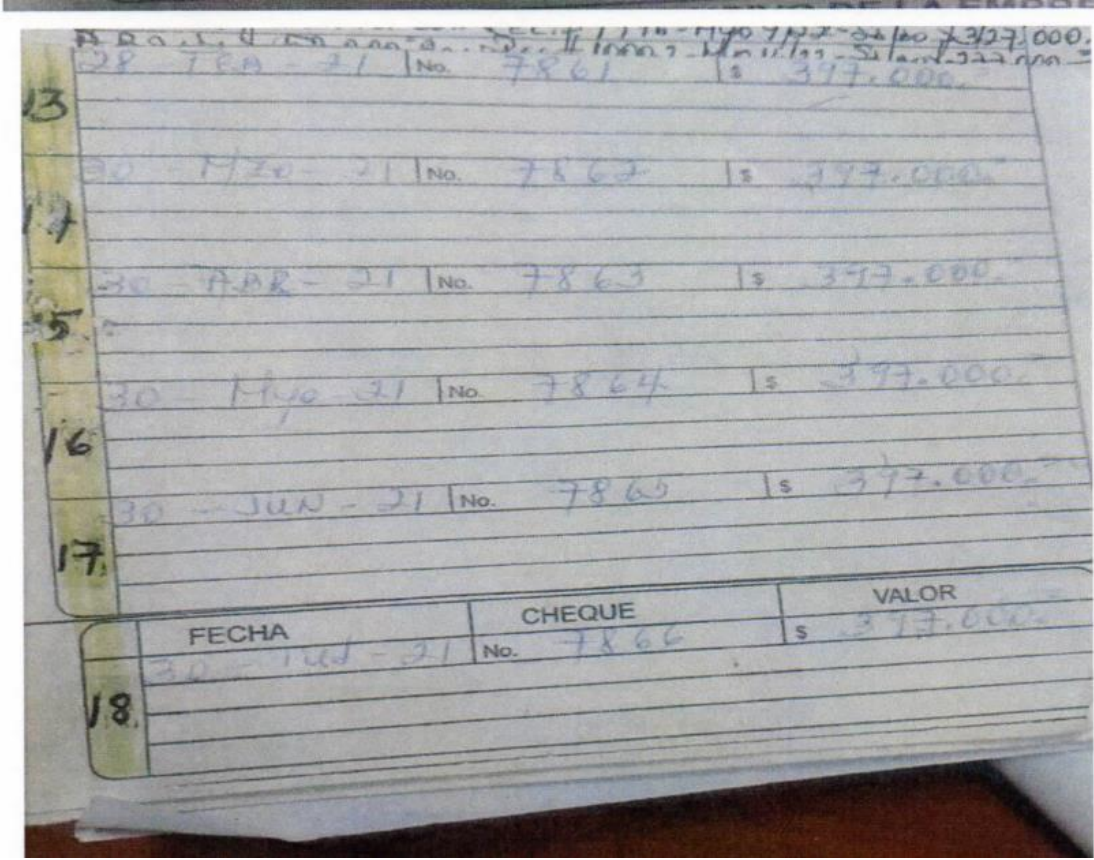 DE LA EMPRE
28 FEB 21 No. 7861 $ 397.000.=
13
30 - MZo - 21 No. 7862 $ 397.000.=
30 - ABR - 21 No. 7863 $ 397.000.=
15
30 Myo 21 No. 7864 $ 397.000.=
16
30 - JUN - 21 No. 7865 $ 397.000.=
17
FECHA CHEQUE VALOR
30 - Jul - 21 No. 7866 $ 397.000.=
18